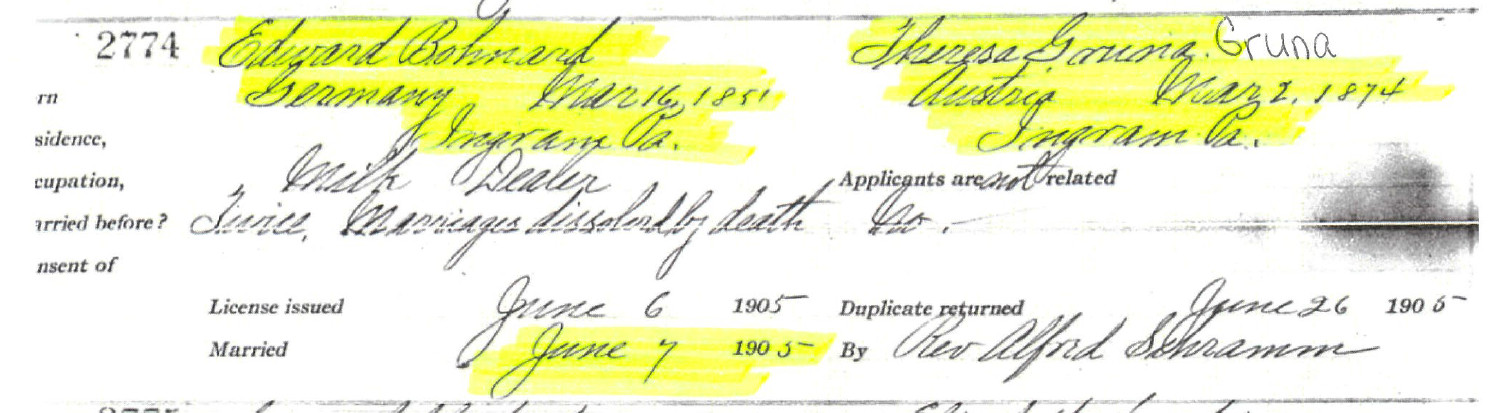 2774 Edward Bohnard Theresa Gruna. Gruna
rn Germany Mar 16, 1851 Austria Mar 2, 1874
sidence, Ingram Pa. Ingram Pa.
cupation, Milk Dealer Applicants are not related
arried before? Twice, Marriages dissolved by death No.
nsent of
License issued June 6 1905 Duplicate returned June 26 1905
Married June 7 1905 By Rev Alfred Schramm